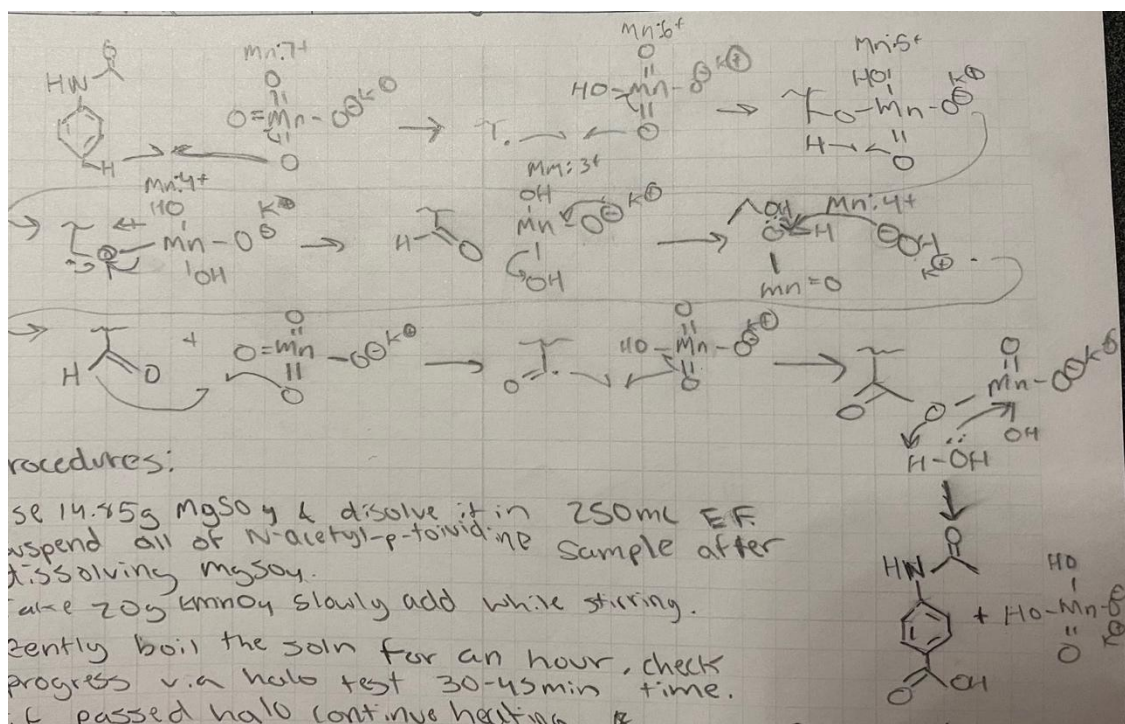 O
Mn:7+
Mn:6+
Mn:5+
HN
O
O
HO
O=Mn-O⊖K⊕
HO-Mn-O⊖K⊕
O-Mn-O⊖K⊕
H
O
O
H
O
Mn:4+
Mn:3+
Mn:4+
HO
K⊕
OH
OH
O
Mn-O⊖
H
O
Mn-O⊖K⊕
O-H
⊖OH
K⊕
OH
OH
Mn=O
H
O
+
O=Mn-O⊖K⊕
O
O
O
HO-Mn-O⊖K⊕
O
O
O
O
Mn-O⊖K⊕
OH
H-OH
rocedures:
se 14.85g MgSO4 & disolve it in 250mL E.F.
uspend all of N-acetyl-p-toluidine sample after
dissolving MgSO4.
ake 20g KMnO4 slowly add while stirring.
Gently boil the soln for an hour, check
progress via halo test 30-45min time.
passed halo continue heating
O
HN
HO
+ HO-Mn-O⊖
K⊕
O
O
OH